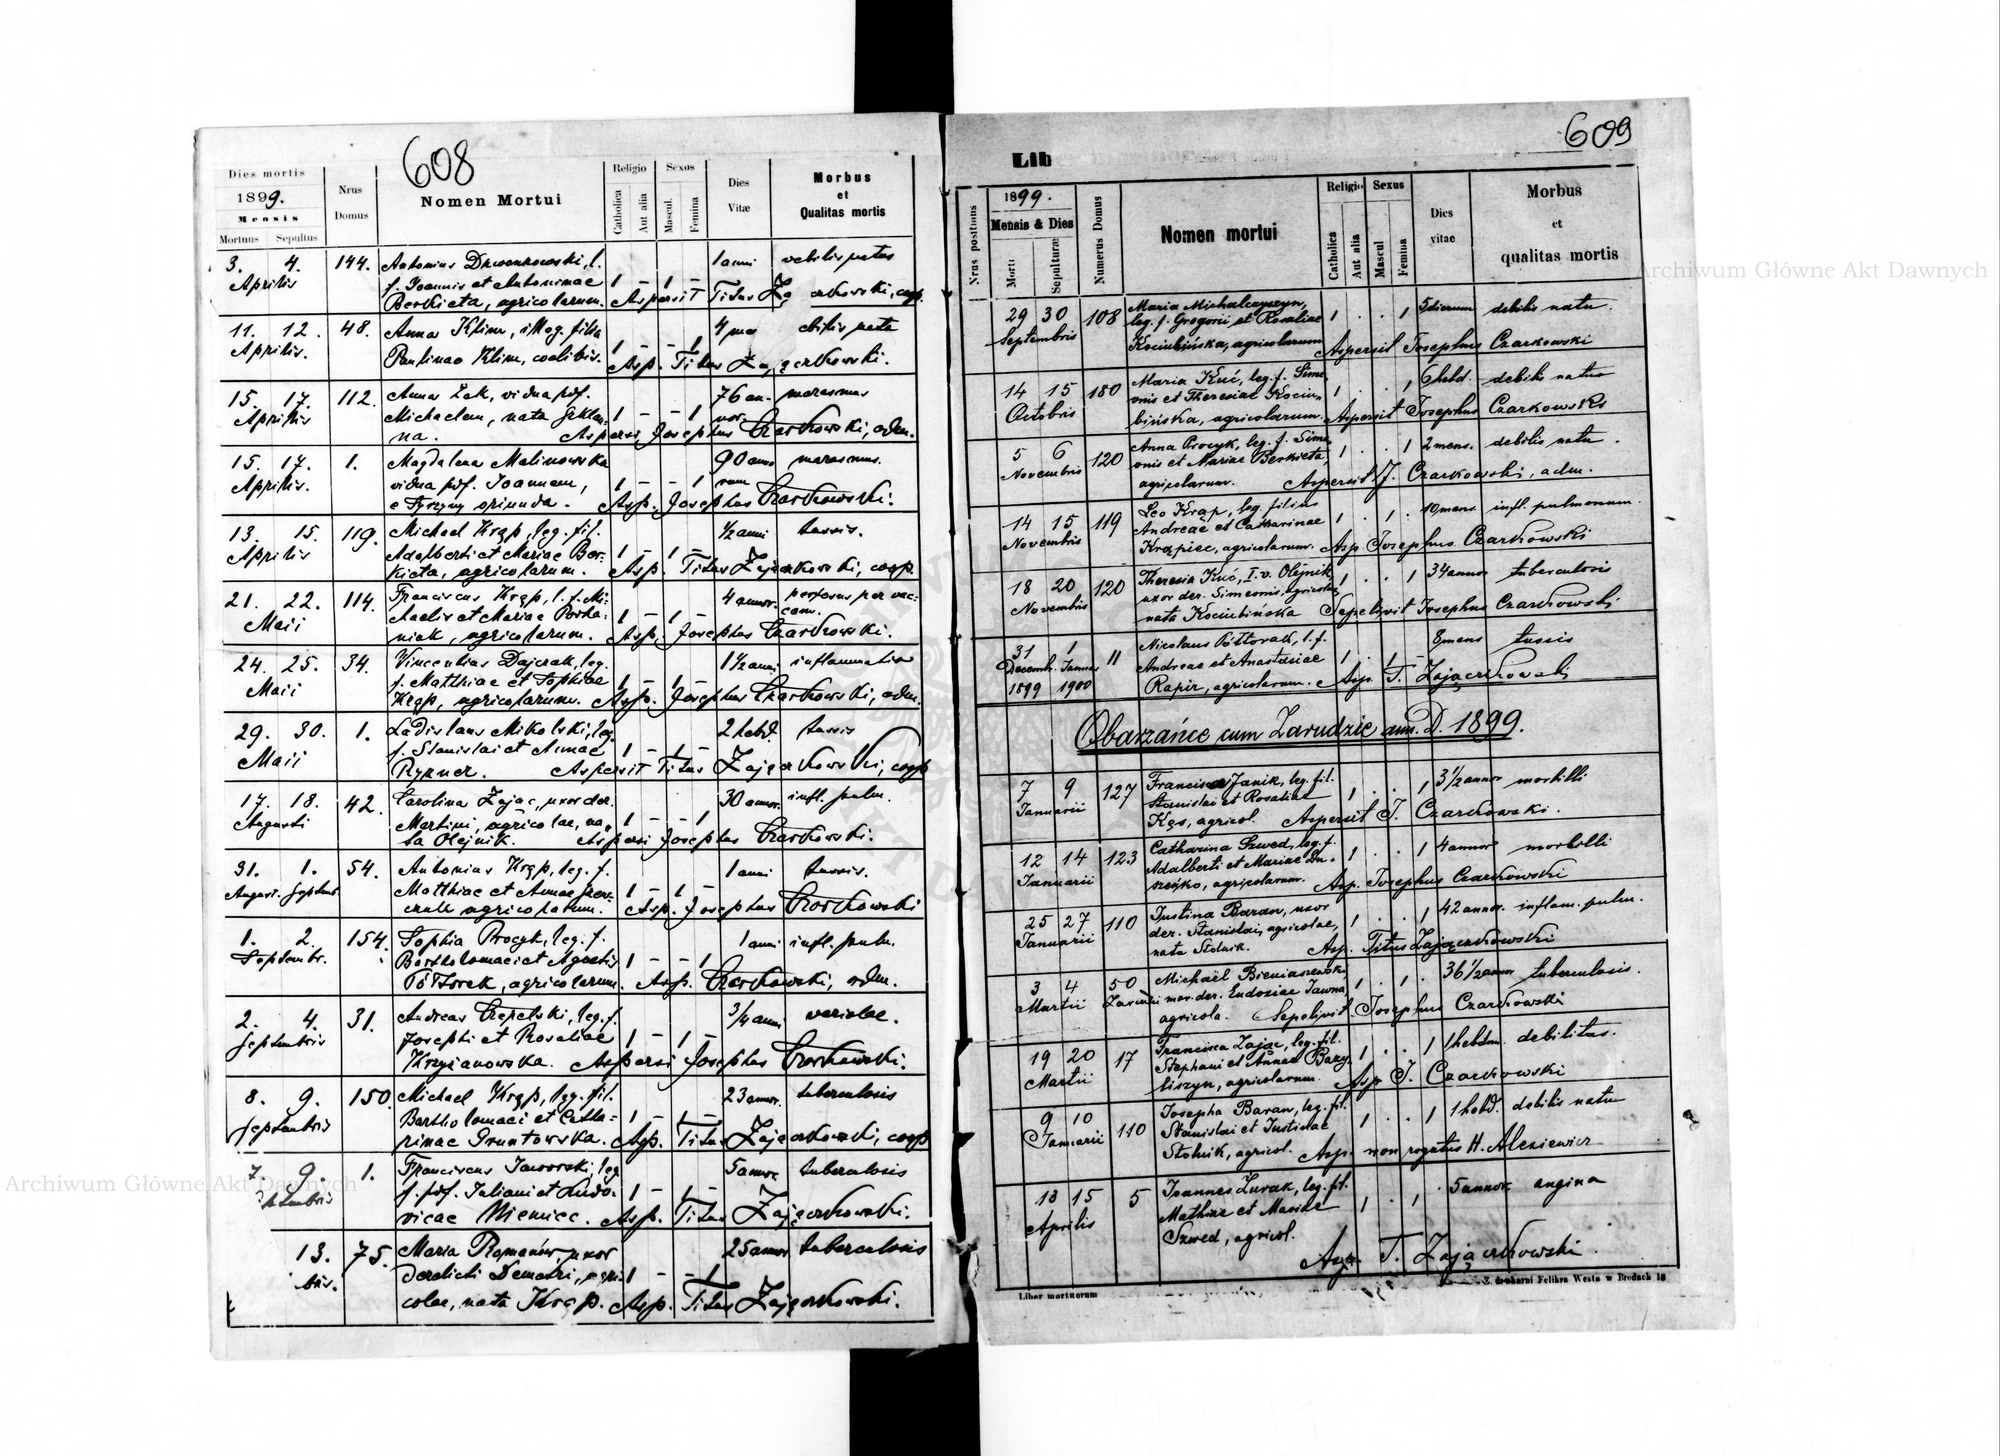 608
Dies mortis
1899.
Mensis
Mortuus Sepultus
Nrus Domus
Nomen Mortui
Religio
Catholica
Aut alia
Sexus
Mascul.
Femina
Dies Vitæ
Morbus et Qualitas mortis
3. 4. 144. Antonius l. 1 anni debilis natus
Aprilis f. Joannis et Antoninae 1 – 1 –
Berkieta, agricolarum. Aspersit Titus Zajączkowski, coop.
11. 12. 48. Anna Klim, illeg. filia 4 debilis nata
Aprilis. Paulinae Klim, coelibis. 1 – – 1
Asp. Titus Zajączkowski.
15. 17. 112. Anna Żak, vidua pdf. 76 an- marasmus
Aprilis Michaelem, nata 1 – – 1 nor.
na. Aspersi Josephus Czarkowski, adm.
15. 17. 1. Magdalena Malinowska 90 anno marasmus.
Aprilis. vidua pdf. Joannem, 1 – – 1 rum
e oriunda. Asp. Josephus Czarkowski.
13. 15. 119. Michael Krąp, leg. fil. ½ anni tussis.
Aprilis Adalberti et Mariae Ber- 1 – 1 –
kieta, agricolarum. Asp. Titus Zajączkowski, coop.
21. 22. 114. Franciscus Krąp, l. f. Mi- 4 annor. perfosus per vac-
Maii chaelis et Mariae 1 – 1 – cam.
niak, agricolarum. Asp. Josephus Czarkowski.
24. 25. 34. Vincentius Dajczak, leg. 1 ½ anni inflammatio
Maii f. Matthiae et Sophiae 1 – 1 –
Krąp, agricolarum. Asp. Josephus Czarkowski, adm.
29. 30. 1. Ladislaus Mikolski, leg. 2 hebd. tussis
Maii f. Stanislai et Annae 1 – 1 –
Ryzner. Aspersit Titus Zajączkowski, coop
17. 18. 42. Carolina Zając, uxor der. 30 annor. infl. pulm.
Augusti Martini, agricolae, na- 1 – – 1
ta Olejnik. Aspersi Josephus Czarkowski.
31. 1. 54. Antonius Krąp, leg. f. 1 anni tussis.
August. Septemb. Matthiae et Annae 1 – 1 –
agricolarum. Asp. Josephus Czarkowski
1. 2. 154. Sophia Procyk, leg. f. 1 anni infl. pulm.
Septembr. Bartholomaei et Agnetis 1 – – 1
Półtorak, agricolarum. Asp. Czarkowski, adm.
2. 4. 31. Andreas Czepelski, leg. f. ¾ anni variolae.
Septembris Josephi et Rosaliae 1 – 1 –
Krzyżanowska. Aspersi Josephus Czarkowski.
8. 9. 150. Michael Krąp, leg. fil. 23 annor. tuberculosis
Septembris Bartholomaei et Catha- 1 – 1 –
rinae Gruntowska. Asp. Titus Zajączkowski, coop
7. 9. 1. Franciscus Jaworski, leg 5 annor. tuberculosis
f. pdf. Juliani et Ludo- 1 – 1 –
vicae Niemiec. Asp. Titus Zajączkowski.
13. 75. Maria Romanów, uxor 25 annor. tuberculosis
bris. derelicti Demetri, agri- 1 – – 1
colae, nata Krąp. Asp. Titus Zajączkowski.
609
Lib
Nrus positionis
1899.
Mensis & Dies
Mortis
Sepulturæ
Numerus Domus
Nomen mortui
Religio
Catholica
Aut alia
Sexus
Mascul
Femina
Dies vitae
Morbus et qualitas mortis
29 30 108 Maria Michalczyszyn, 5 dierum debilis natu
Septembris leg. f. Gregorii et Rosaliae 1 . . 1
Kociubińska, agricolarum Aspersit Josephus Czarkowski
14 15 180 Maria Kuć, leg. f. Sime- 6 hebd. debilis natu
Octobris onis et Theresiae Kociu- 1 . . 1
bińska, agricolarum. Aspersit Josephus Czarkowski
5 6 120 Anna Procyk, leg. f. Sime- 1 . . 1 2 mens. debilis natu.
Novembris onis et Mariae Berkieta,
agricolarum. Aspersit J. Czarkowski, adm.
14 15 119 Leo Krąp, leg. filius 10 mens. infl. pulmonum.
Novembris Andreae et Catharinae 1 . 1 .
Krąpiec, agricolarum. Asp. Josephus Czarkowski
18 20 120 Theresia Kuć, I. v. Olejnik 1 . . 1 34 annor tuberculosis
Novembris uxor der. Simeonis, agricolae,
nata Kociubińska Sepelivit Josephus Czarkowski
31 1 11 Nicolaus Półtorak, l. f. 8 mens tussis
Decemb. Januar Andreae et Anastasiae 1 . 1 –
1899 1900 Rapir, agricolarum. Asp. T. Zajączkowski
Obarzańce cum Zarudzie ann. D. 1899.
7 9 127 Francisca Janik, leg. fil. 1 . . 1 3 ½ annor morbilli
Januarii Stanislai et Rosaliae
Kęs, agricol. Aspersit J. Czarkowski.
12 14 123 Catharina Szwed, leg. f. 1 . . 1 4 annor morbilli
Januarii Adalberti et Mariae Du-
szeńko, agricolarum. Asp. Josephus Czarkowski
25 27 110 Justina Baran, uxor 1 . . 1 42 annor. inflam. pulm.
Januarii der. Stanislai, agricolae,
nata Stolnik. Asp. Titus Zajączkowski
3 4 50 Michaël Bieniaszewski, 36 ½ annor tuberculosis.
Martii Zarudzi mar. der. Eudosiae Jawna, 1 . 1 .
agricola. Sepelivit Josephus Czarkowski
19 20 17 Francisca Zając, leg. fil. 1 . . 1 1 hebdm. debilitas.
Martii Stephani et Annae Bazy-
liszyn, agricolarum. Asp J. Czarkowski
9 10 110 Josepha Baran, leg. fil. 1 . . 1 1 hebd. debilis natu
Januarii Stanislai et Justinae
Stolnik, agricol. Asp. non rogatus H. Alexiewicz
13 15 5 Joannes Żurak, leg. fil. 5 annor. angina
Aprilis Mathiae et Mariae 1 . 1
Szwed, agricol.
Asp. T. Zajączkowski
Liber mortuorum
Z drukarni Feliksa Westa w Brodach 18
Archiwum Główne Akt Dawnych
Archiwum Główne Akt Dawnych